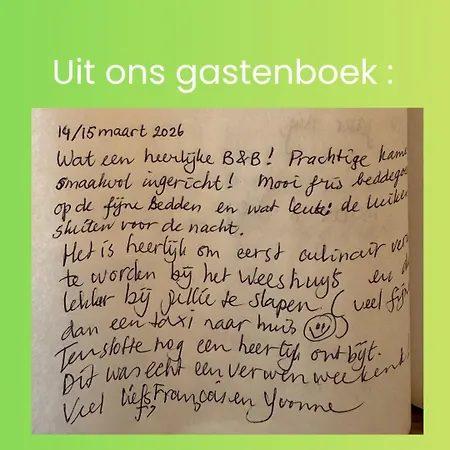 Uit ons gastenboek :
14/15 maart 2026
Wat een heerlijke B&B! Prachtige kame
smaakvol ingericht! Mooi fris beddego
op de fijne bedden en wat leuk: de luiken
sluiten voor de nacht.
Het is heerlijk om eerst culinair verw
te worden bij het Weeshuys en d
lekker bij jullie te slapen (veel fijn
dan een taxi naar huis ☺)
Tenslotte nog een heerlijk ontbijt.
Dit was echt een verwen weekend!
Veel liefs, François en Yvonne